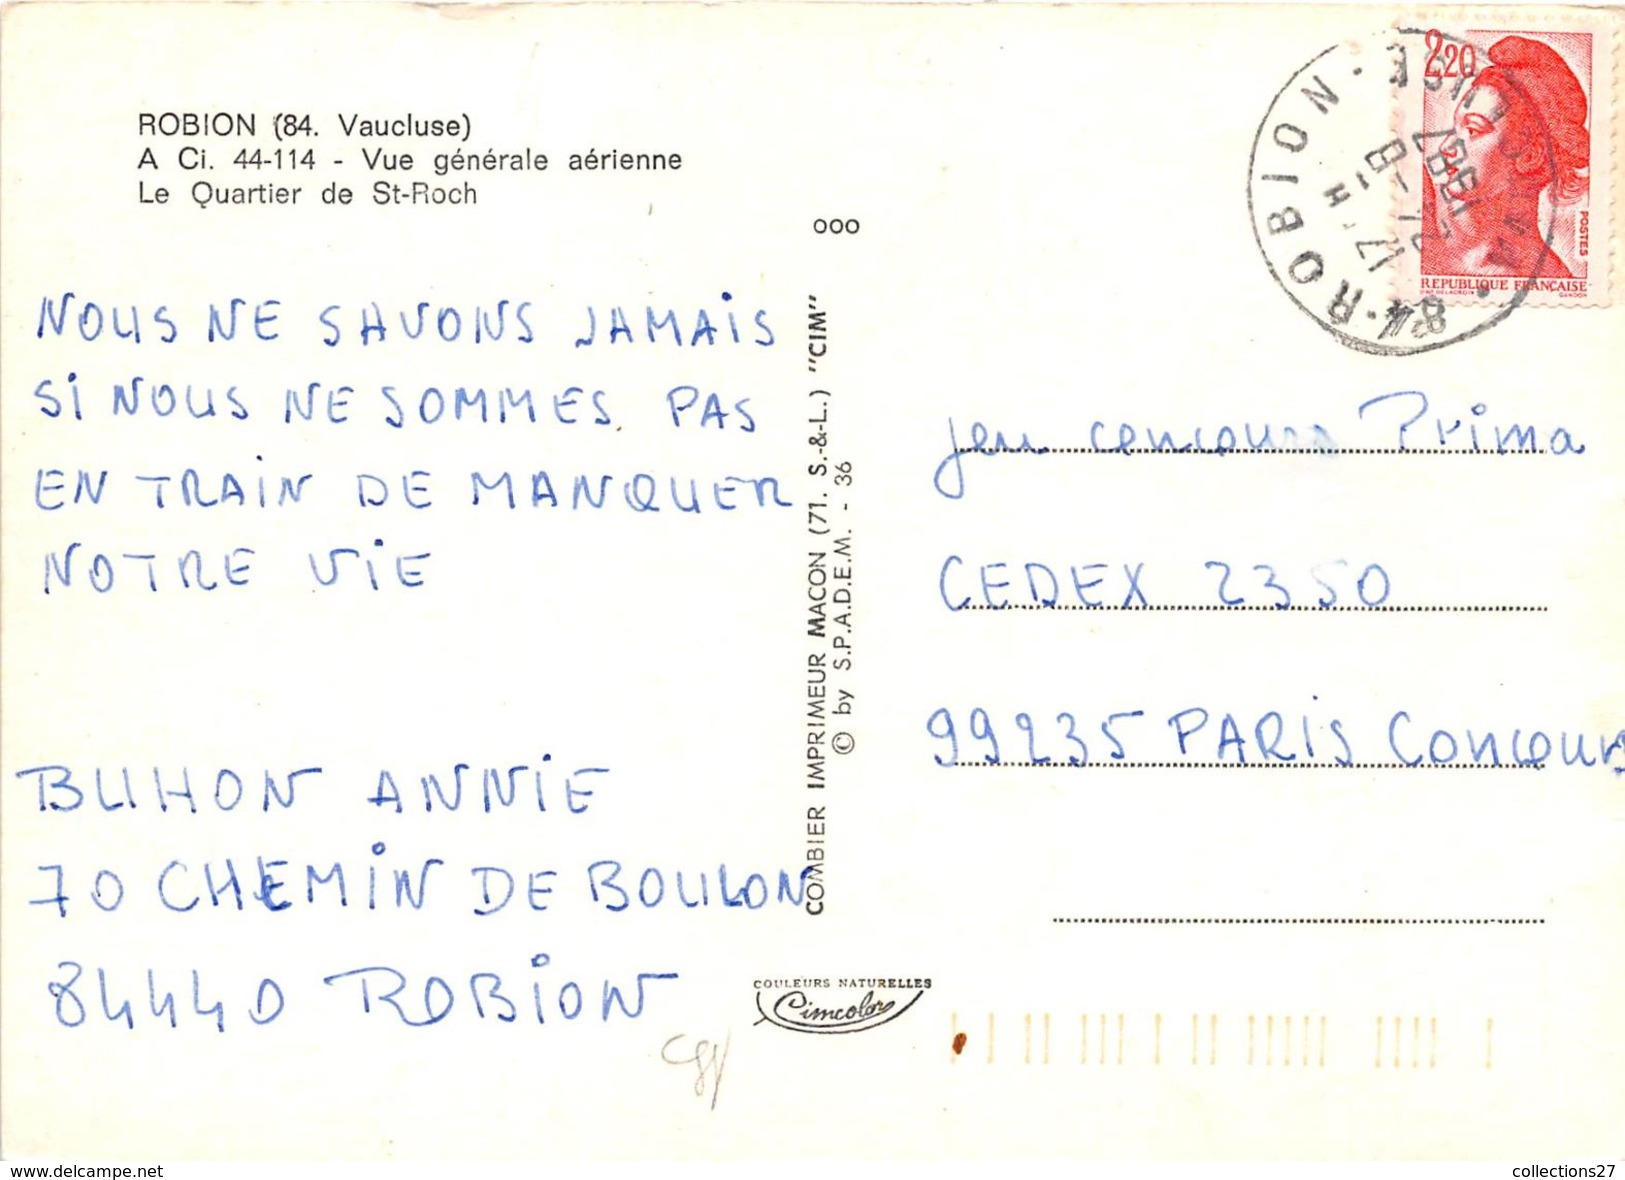 ROBION (84. Vaucluse)
A Ci. 44-114 - Vue générale aérienne
Le Quartier de St-Roch
ooo
NOUS NE SAVONS JAMAIS
Si NOUS NE SOMMES PAS
EN TRAIN DE MANQUER
NOTRE ViE
BUHON ANNIE
70 CHEMIN DE BOULON
84440 ROBION
COMBIER IMPRIMEUR MACON (71. S.-&-L.) "CIM"
© by S.P.A.D.E.M. - 36
COULEURS NATURELLES
Cimcolor
2,20
POSTES
REPUBLIQUE FRANÇAISE
D'AP. DELACROIX GANDON
84 - ROBION - VAUCLUSE
17 H
2 - 9
1987
jeu concours Prima
CEDEX 2350
99235 PARIS Concours
www.delcampe.net
collections27